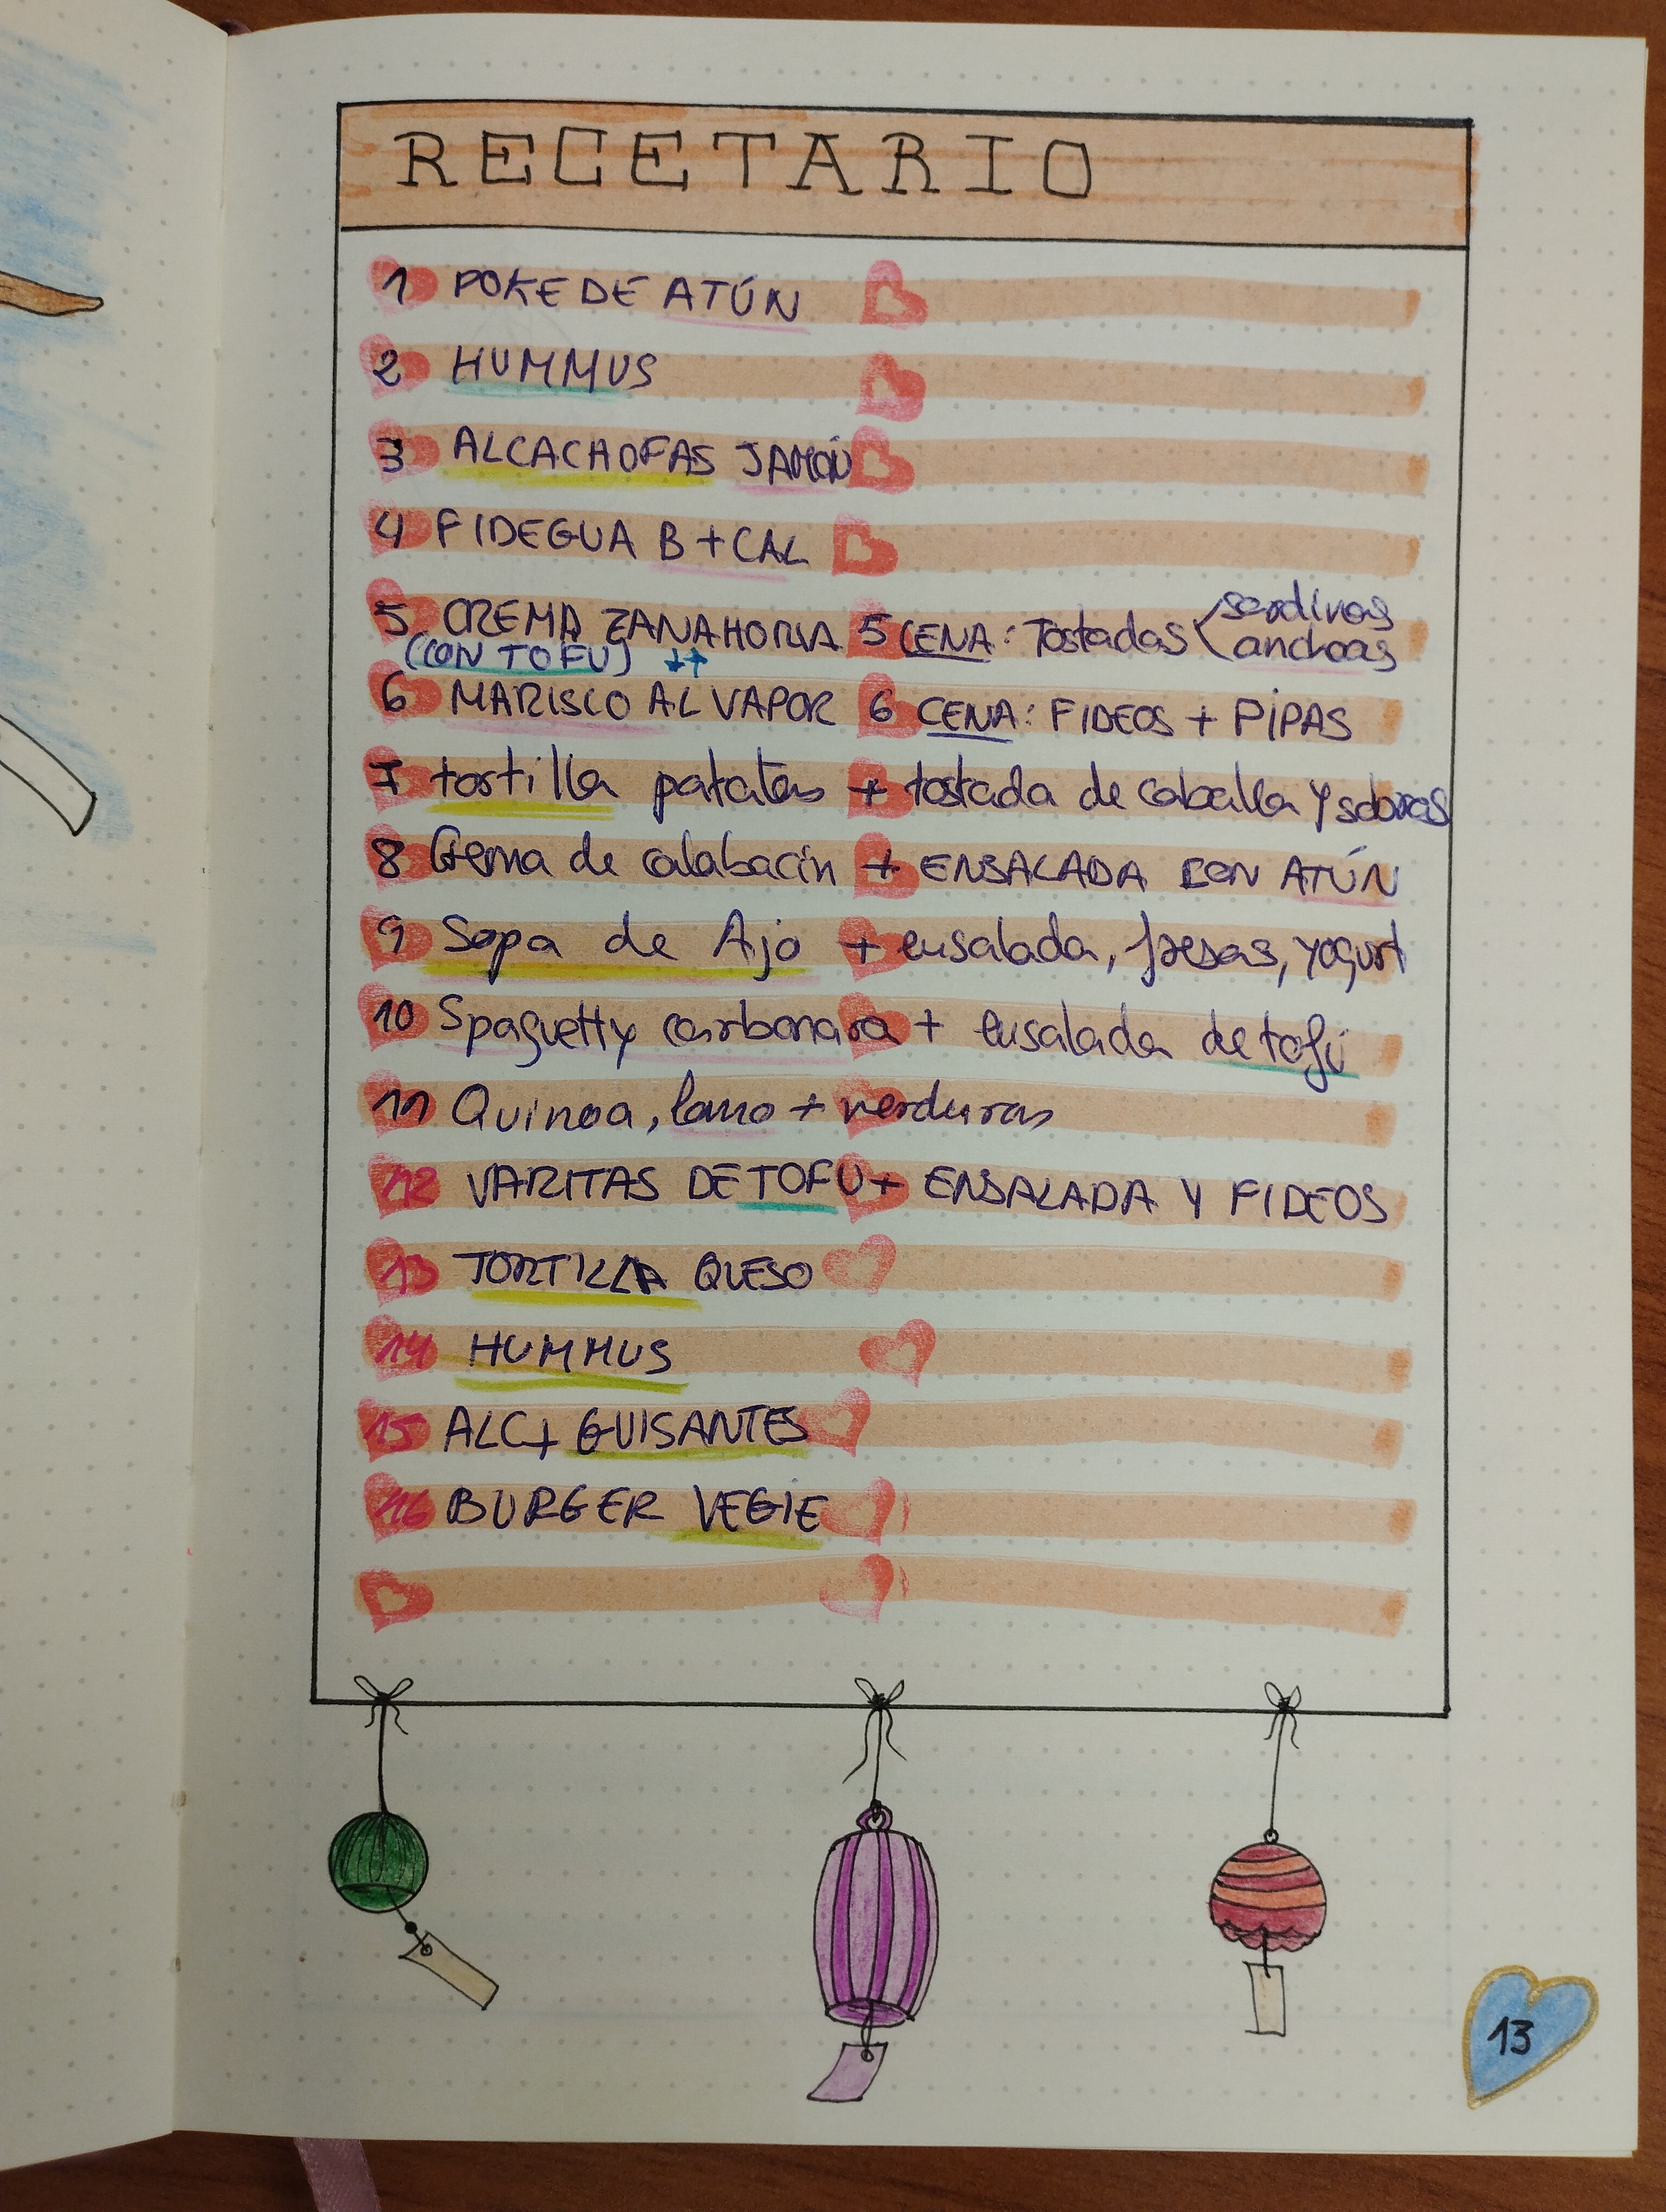 RECETARIO
1 POKE DE ATÚN
2 HUMMUS
3 ALCACHOFAS JAMÓN
4 FIDEGUA B + CAL
5 CREMA ZANAHORIA 5 CENA: Tostadas sardinas
(CON TOFU) ↓↑ anchoas
6 MARISCO AL VAPOR 6 CENA: FIDEOS + PIPAS
7 tortilla patatas + tostada de caballa y
8 Crema de calabacín + ENSALADA CON ATÚN
9 Sopa de Ajo + ensalada, fresas, yogurt
10 Spaguetty carbonara + ensalada de tofu
11 Quinoa, lomo + verduras
12 VARITAS DE TOFU + ENSALADA Y FIDEOS
13 TORTILLA QUESO
14 HUMMUS
15 ALC + GUISANTES
16 BURGER VEGIE
13